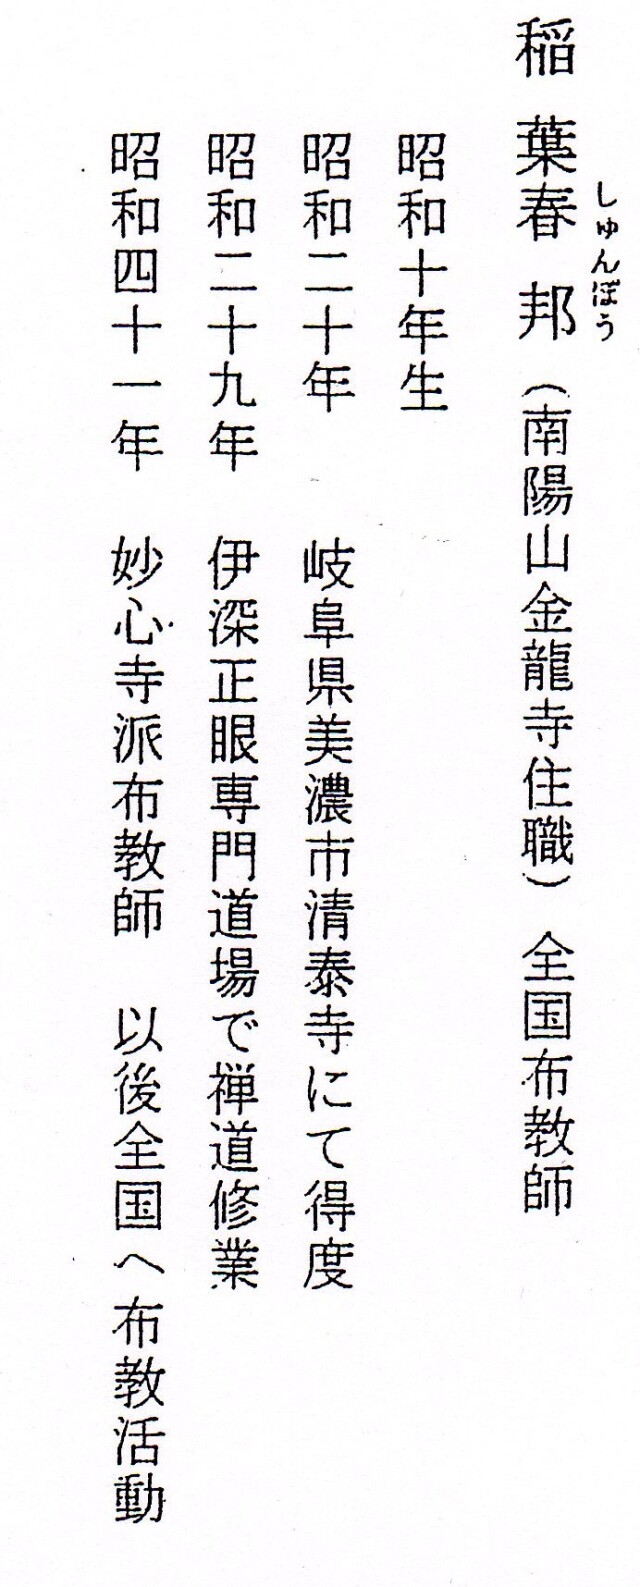 稲葉春邦（南陽山金龍寺住職）全国布教師
しゅんぽう
昭和十年生
昭和二十年　岐阜県美濃市清泰寺にて得度
昭和二十九年　伊深正眼専門道場で禅道修業
昭和四十一年　妙心寺派布教師　以後全国へ布教活動